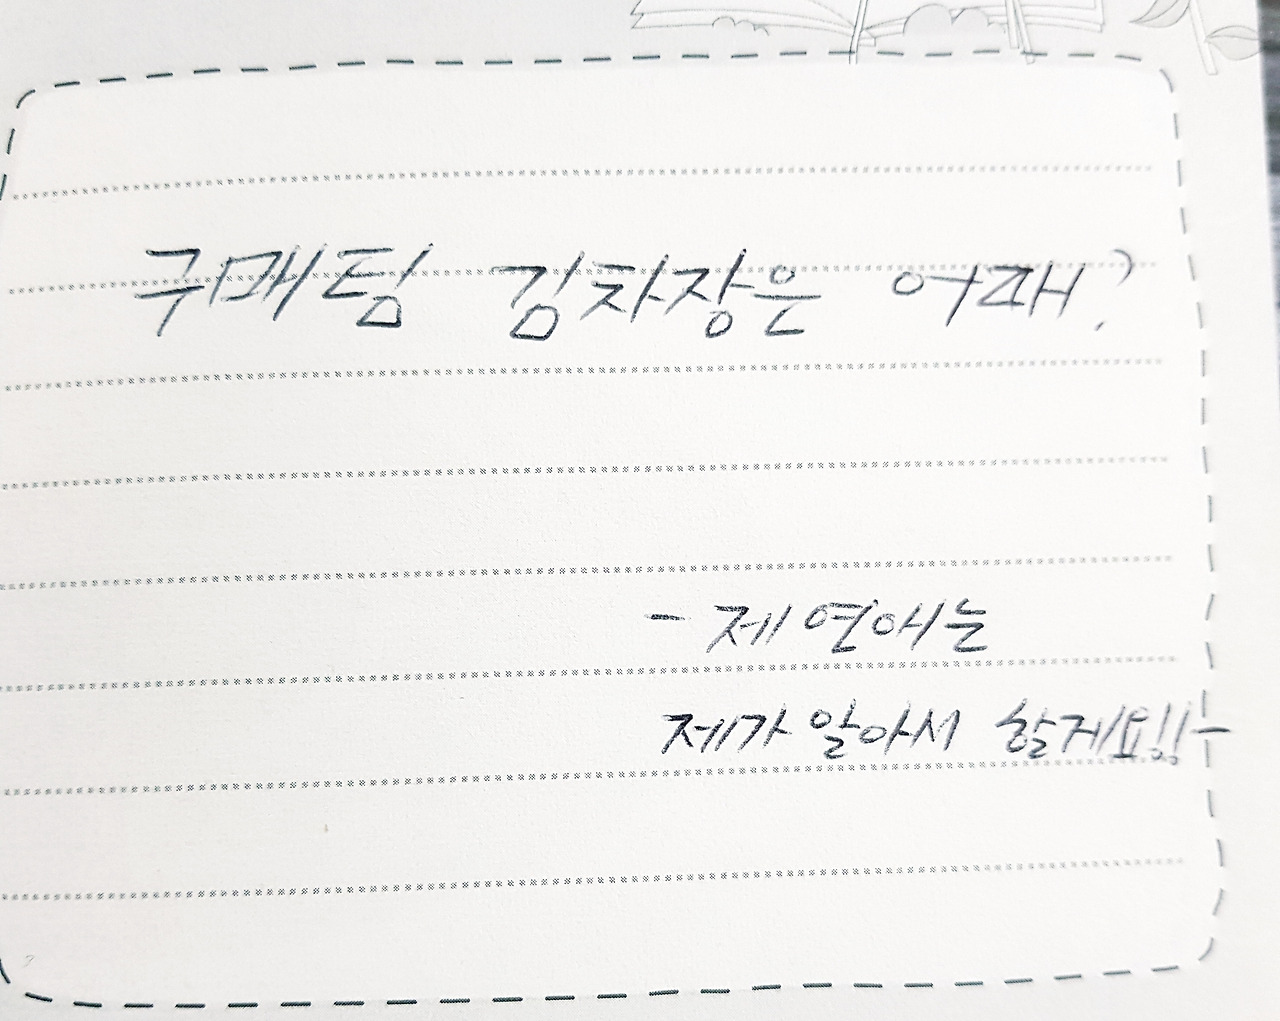 구매팀 김차장은 어때?
- 제 연애는
제가 알아서 할게요!! -